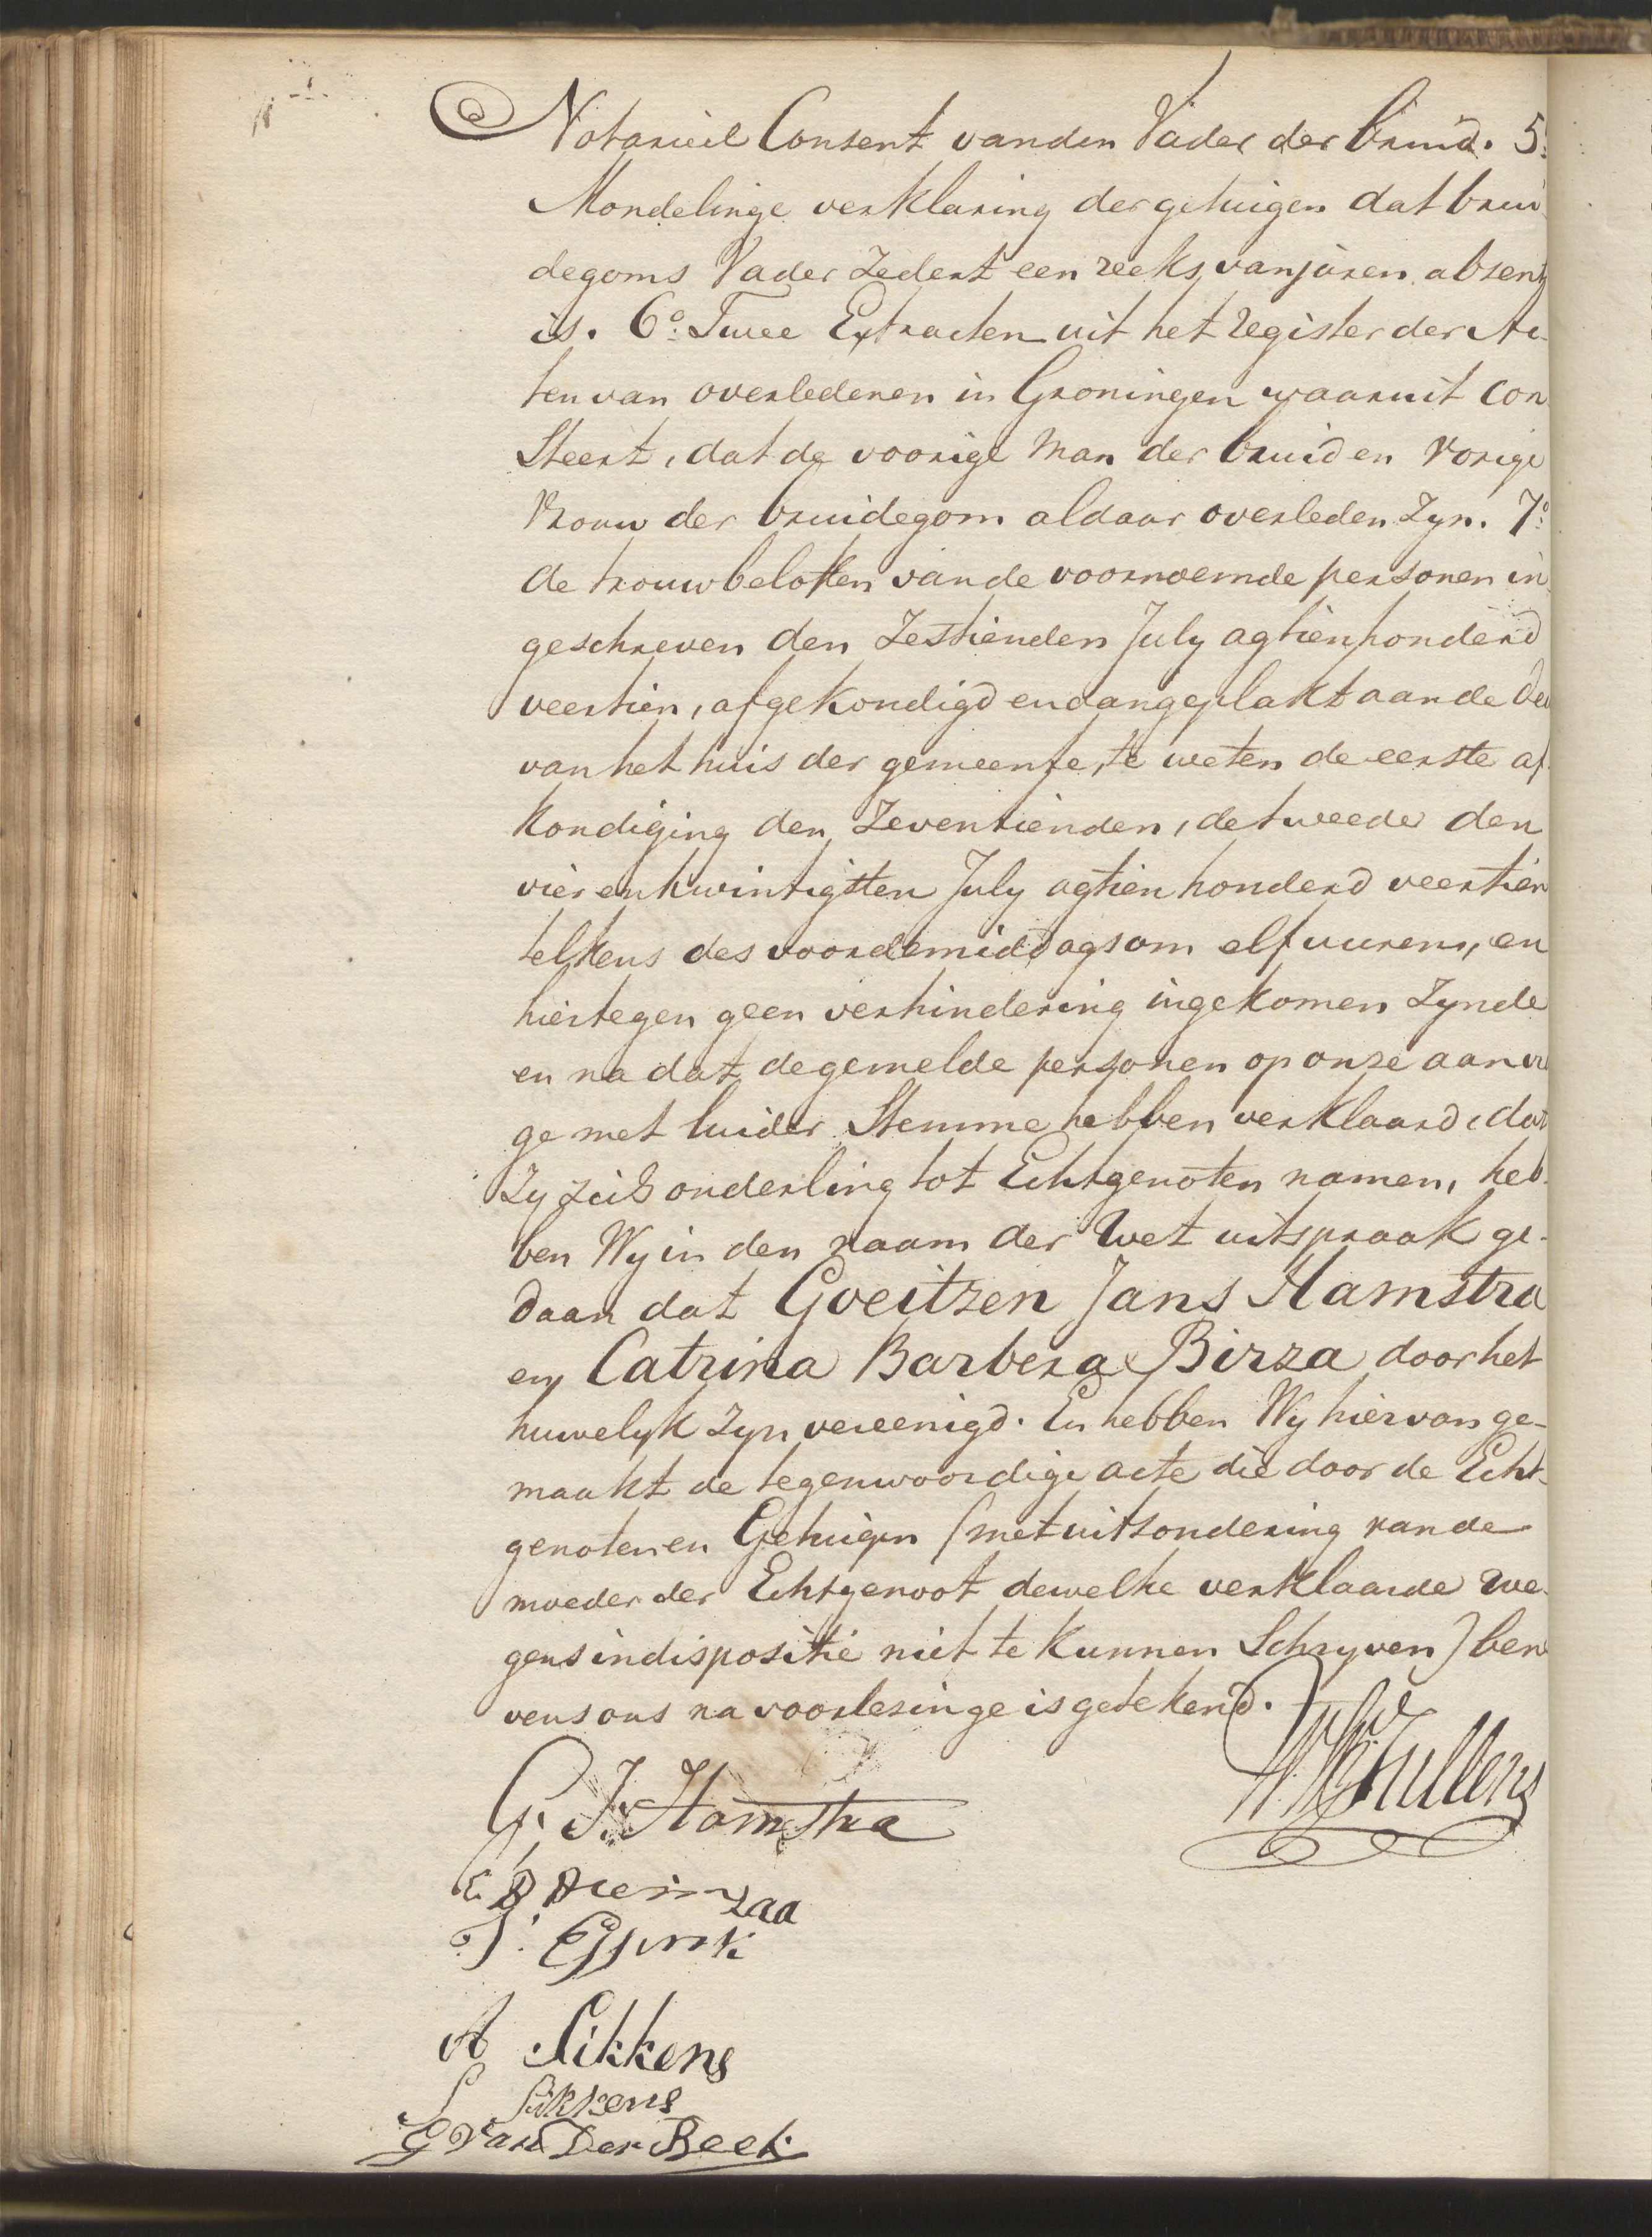 Notarieel Consent van den Vader der bruid. 5.°
Mondelinge verklaring der getuigen dat brui
degoms Vader Zedert een reeks van jaren absent
is. 6.° Twee Extracten uit het register der Ac-
ten van overledenen in Groningen waaruit Con
Steert, dat de voorige man der bruid en vorige
Vrouw der bruidegom aldaar overleden Zyn. 7.°
de trouwbeloften van de voornoemde personen in
geschreven den Zestienden July agtienhonderd
veertien, afgekondigd en aangeplakt aan de deu
van het huis der gemeente, te weten de eerste af
kondiging den Zeventienden, de tweede den
vier en twintigsten July agtien honderd veertien
telkens des voordemiddags om elf uuren, en
hiertegen geen verhindering ingekomen Zynde
en na dat de gemelde personen op onze aanvra
ge met luider Stemme hebben verklaard, dat
Zy zich onderling tot Echtgenoten namen, heb-
ben Wy in den naam der Wet uitspraak ge-
daan dat Goeitzen Jans Hamstra
en Catrina Barbera Birza door het
huwelyk Zyn vereenigd. En hebben Wy hiervan ge-
maakt de tegenwoordige acte die door de Echt-
genoten en Getuigen (met uitsondering van de
moeder der Echtgenoot dewelke verklaarde we-
gens indispositie niet te kunnen Schryven) bene
vens ons na voorlesinge is getekend.
G. J. Hamstra
C B
zaa
J. Essink
A Sikkens
S Sikkens
G Van Der Beek